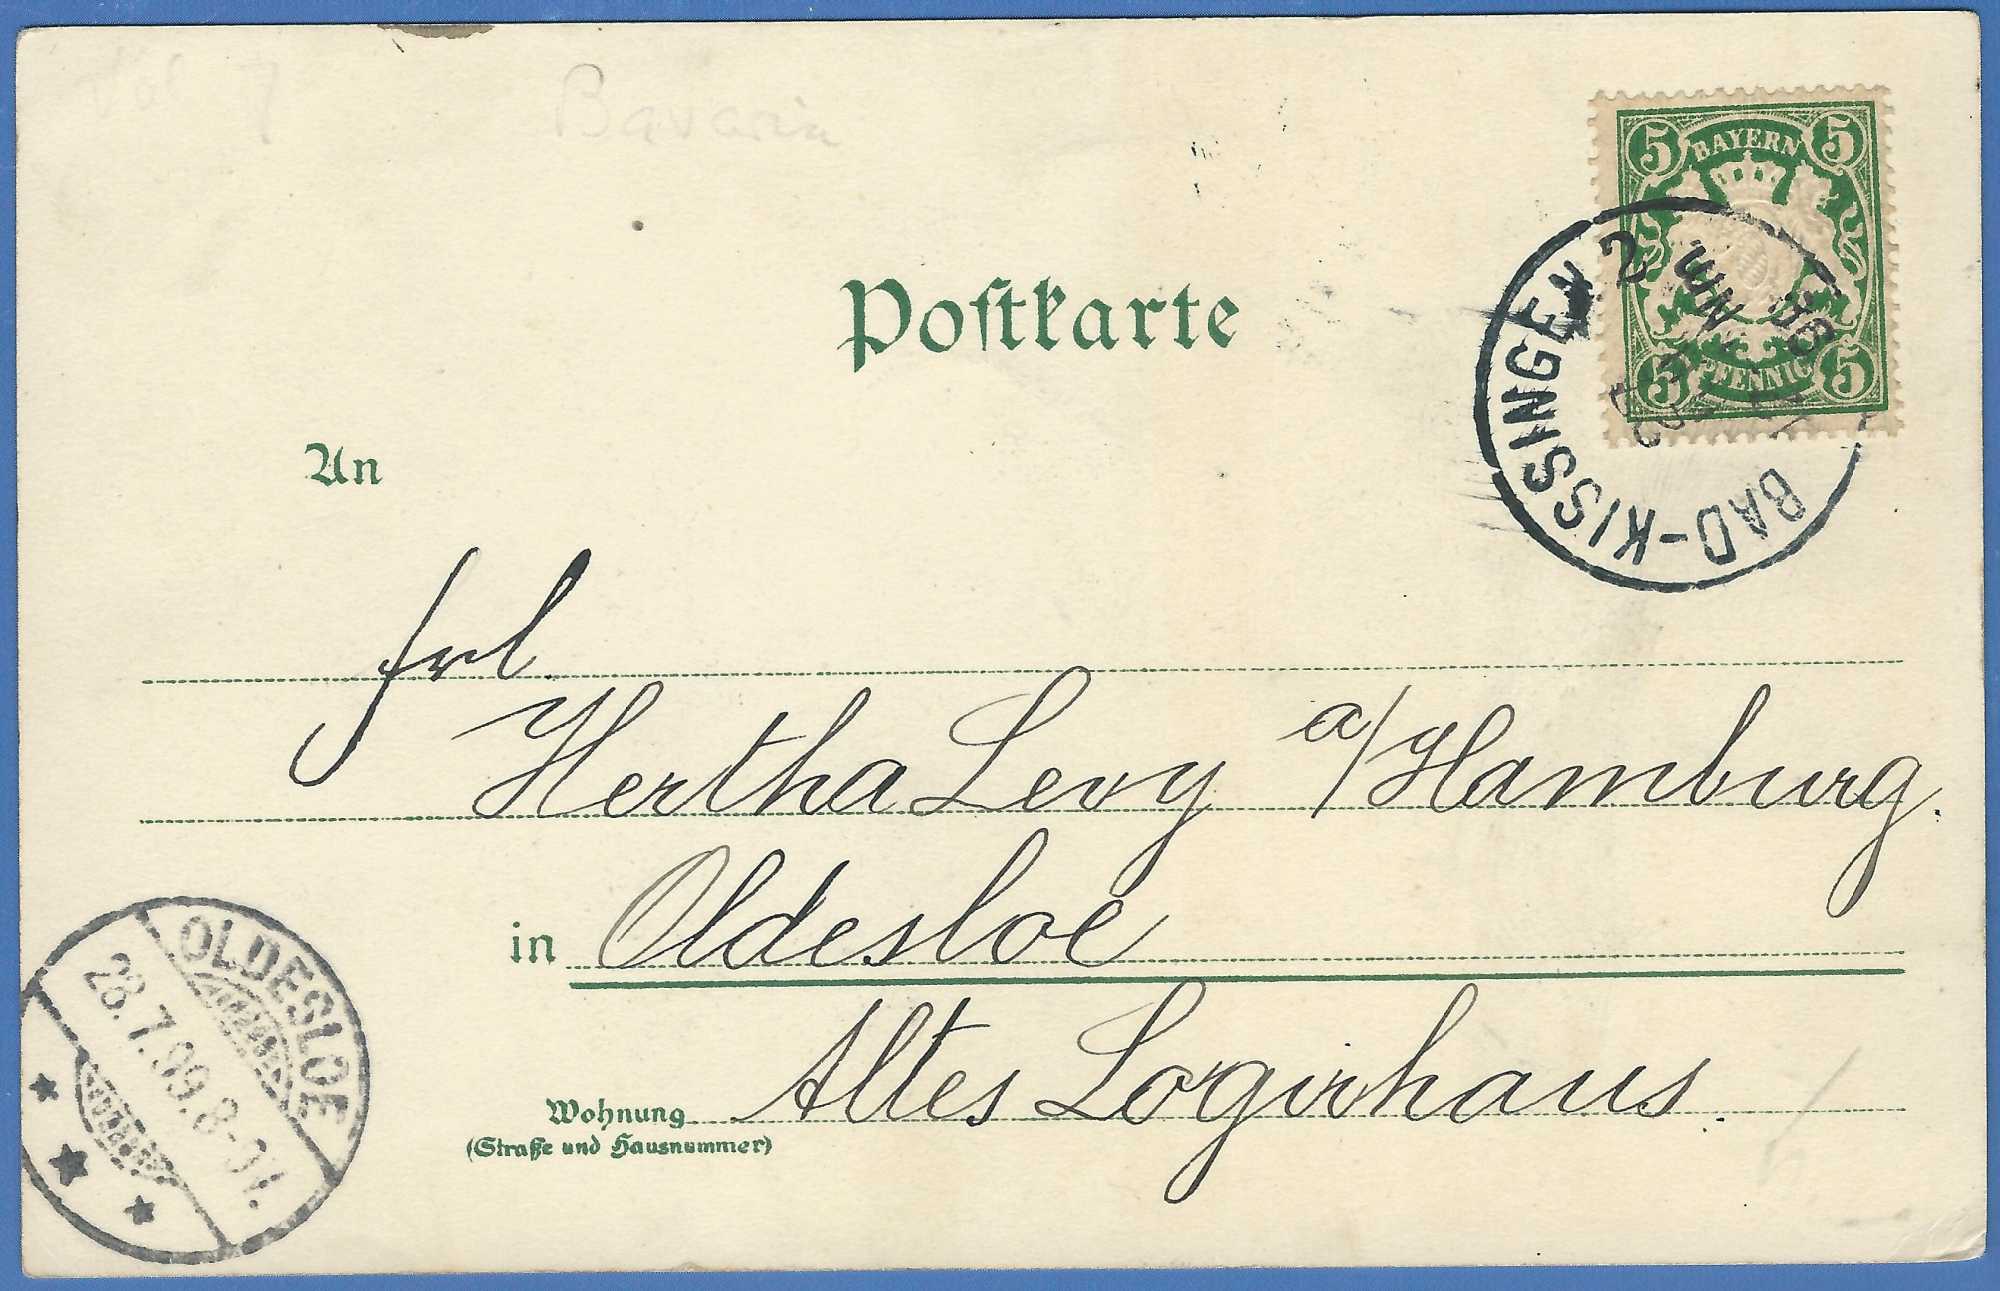 Bavaria
5 BAYERN 5
5 PFENNIG 5
BAD-KISSINGEN 2
Postkarte
An
Frl.
Hertha Levy a/Hamburg.
in Oldesloe
Altes Logirhaus.
Wohnung
(Straße und Hausnummer)
OLDESLOE
28.7.99.8-9V.